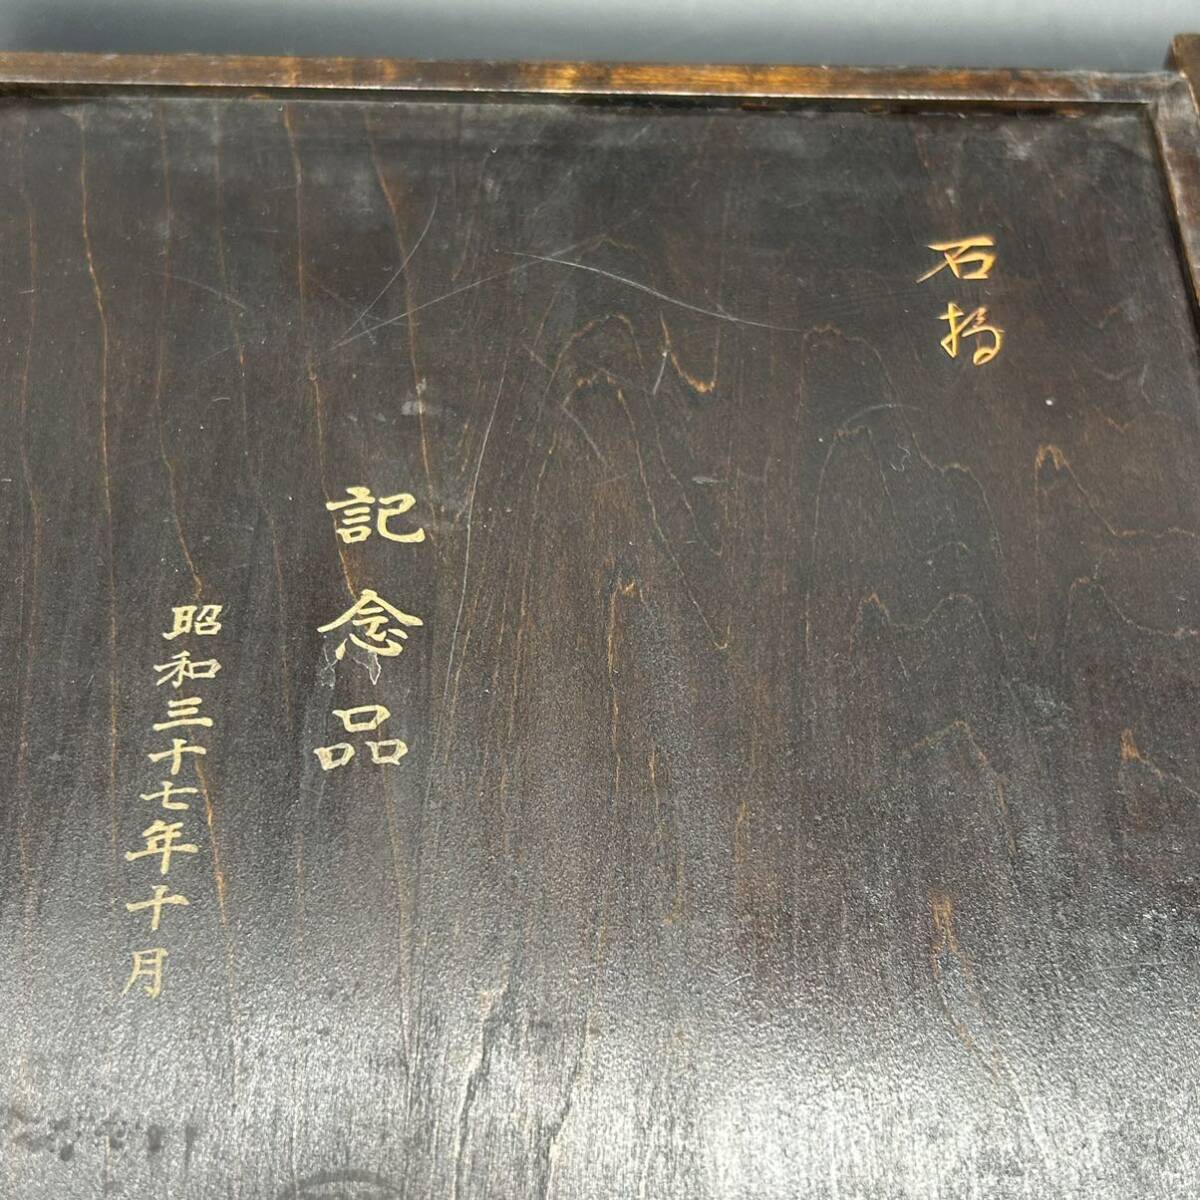 石橋
記念品
昭和三十七年十月